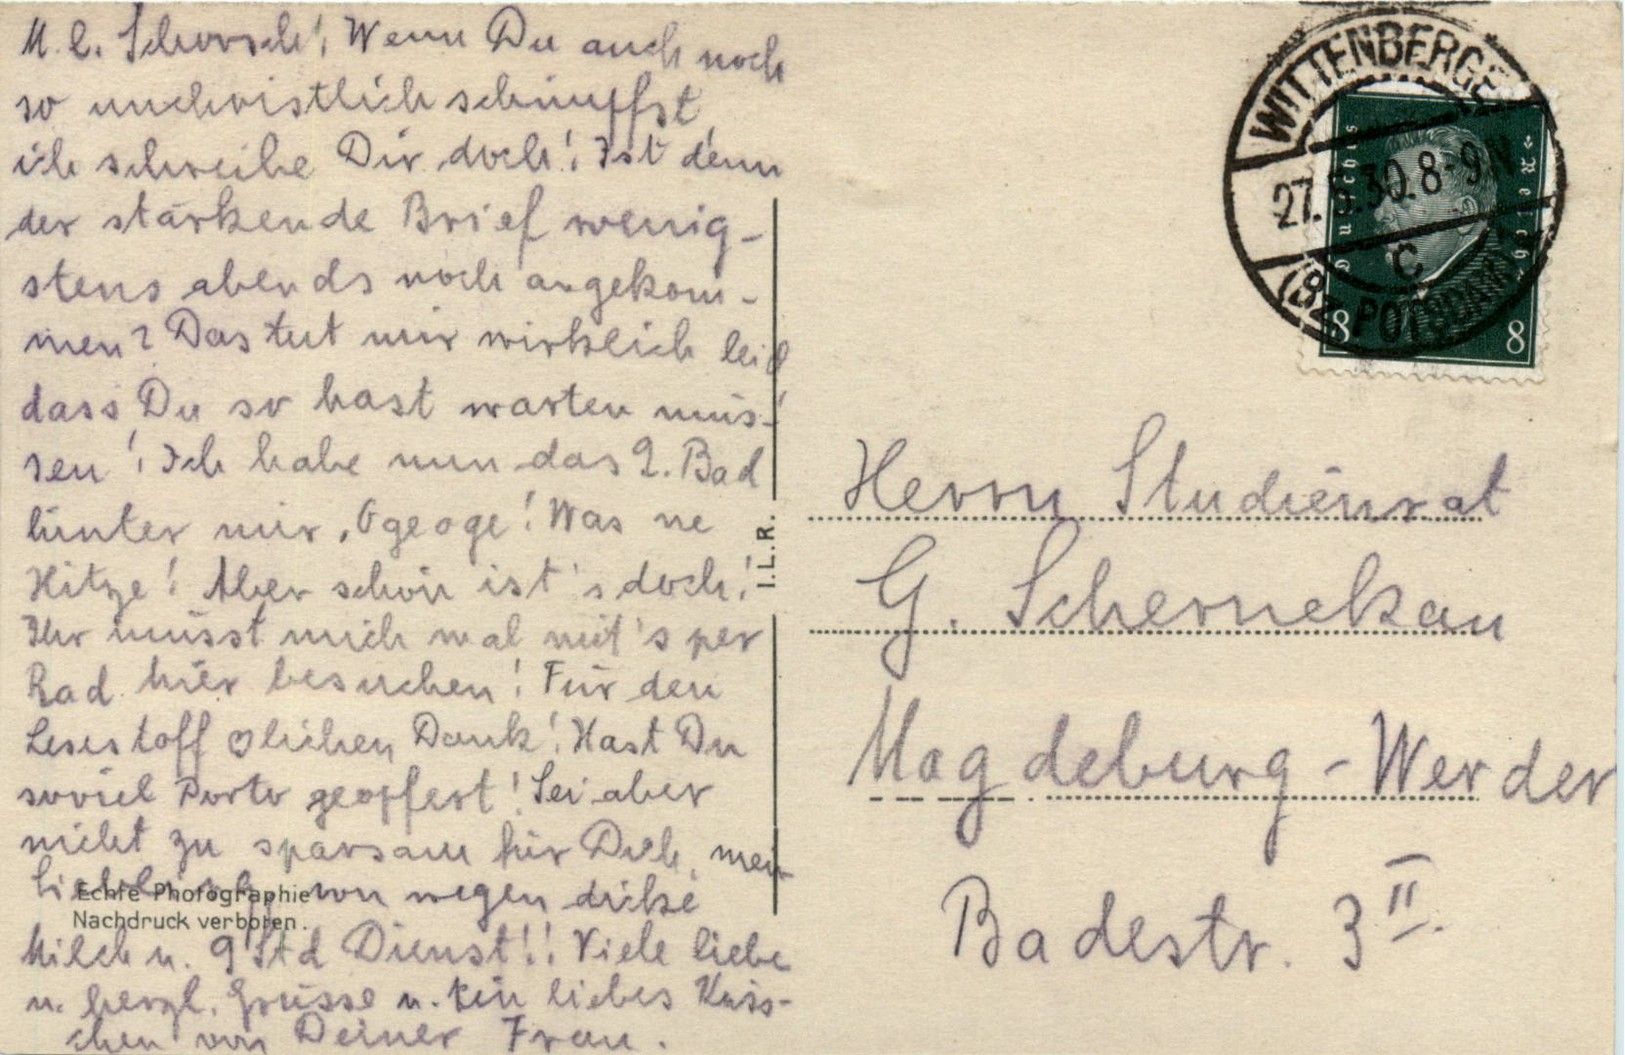 M. l. Schorsch! Wenn Du auch noch
so unchristlich schimpfst,
ich schreibe Dir doch! Ist denn
der stärkende Brief wenig-
stens abends noch angekom-
men? Das tut mir wirklich leid
dass Du so hast warten müs-
sen! Ich habe nun das 2. Bad
hinter mir, Ogeoge! Was ne
Hitze! Aber schön ist's doch!
Ihr müsst mich mal mit's per
Rad hier besuchen! Für den
Lesestoff ♡lichen Dank! Hast Du
soviel Porto geopfert! Sei aber
nicht zu sparsam für Dich, mein
von wegen dicke
Milch u. 9 Std Dienst!! Viele liebe
u. herzl. Grüsse u. kein liebes Küss-
chen von Deiner Frau.
Echte Photographie
Nachdruck verboten.
I.L.R.
WITTENBERGE
27. .30. 8-9 N
C
(Bz. POTSDAM)
Deutsches Reich
8 8
Herrn Studienrat
G. Schernekau
Magdeburg-Werder
Badestr. 3 II.